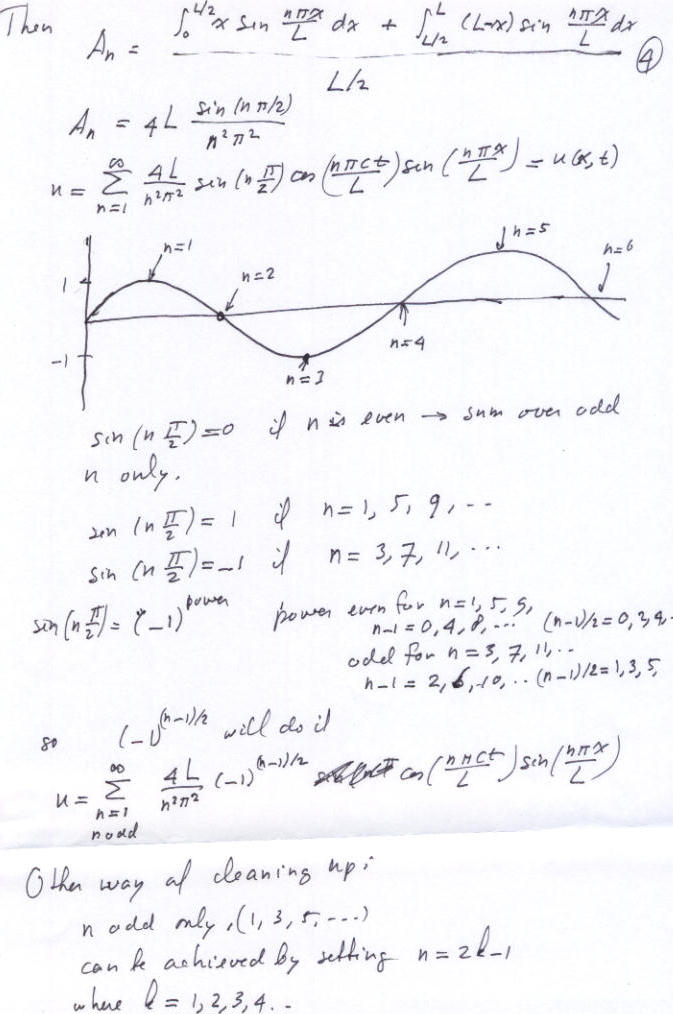 Then
A_n = ∫_0^{L/2} x sin nπx/L dx + ∫_{L/2}^L (L-x) sin nπx/L dx
L/2
④
A_n = 4L sin(nπ/2) / n²π²
u = Σ_{n=1}^∞ 4L/n²π² sin(n π/2) cos(nπct/L) sin(nπx/L) = u(x,t)
n=1
n=2
n=3
n=4
n=5
n=6
1
-1
sin(n π/2)=0 if n is even → sum over odd
n only.
sin(n π/2) = 1 if n = 1, 5, 9, ...
sin(n π/2) = -1 if n = 3, 7, 11, ...
sin(n π/2) = (-1)^power power even for n=1, 5, 9,
n-1 = 0, 4, 8, ... (n-1)/2 = 0, 2, 4..
odd for n = 3, 7, 11, ..
n-1 = 2, 6, 10, .. (n-1)/2 = 1, 3, 5,
so (-1)^{(n-1)/2} will do it
u = Σ_{n=1}^∞ 4L/n²π² (-1)^{(n-1)/2} cos(nπct/L) sin(nπx/L)
n odd
Other way of cleaning up:
n odd only, (1, 3, 5, ...)
can be achieved by setting n = 2k-1
where k = 1, 2, 3, 4..